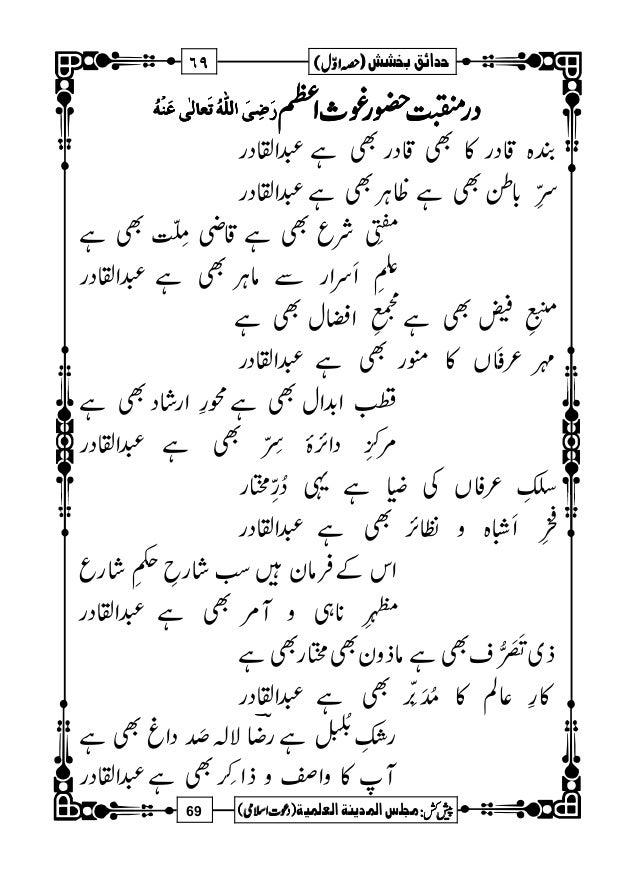 حدائق بخشش (حصہ اوّل)
٦٩
در منقبت حضور غوث اعظم رَضِیَ اللہُ تَعَالٰی عَنْهُ
بندہ قادر کا بھی قادر بھی ہے عبدالقادر
سرِّ باطن بھی ہے ظاہر بھی ہے عبدالقادر
مفتیِ شرع بھی ہے قاضیِ مِلّت بھی ہے
علمِ اَسرار سے ماہر بھی ہے عبدالقادر
منبعِ فیض بھی ہے مجمعِ افضال بھی ہے
مہرِ عرفاں کا منور بھی ہے عبدالقادر
قطب ابدال بھی ہے محورِ ارشاد بھی ہے
مرکزِ دائرۂ سِرّ بھی ہے عبدالقادر
سلکِ عرفاں کی ضیا ہے یہی دُرِّ مختار
فخرِ اَشباہ و نظائر بھی ہے عبدالقادر
اس کے فرمان ہیں سب شارحِ حکمِ شارع
مظہرِ ناہی و آمر بھی ہے عبدالقادر
ذی تَصَرُّف بھی ہے ماذون بھی مختار بھی ہے
کارِ عالم کا مُدَبِّر بھی ہے عبدالقادر
رشکِ بُلبل ہے رضاؔ لالہ صَد داغ بھی ہے
آپ کا واصف و ذاکِر بھی ہے عبدالقادر
پیش کش: مجلس المدینة العلمیة (دعوتِ اسلامی)
69